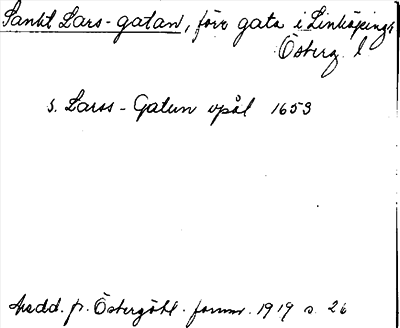 Sankt Lars-gatan, förr gata i Linköpings
Österg. l
S. Lars-Gatun upål 1653
Medd. fr. Östergötl. fornm. 1919 s. 26